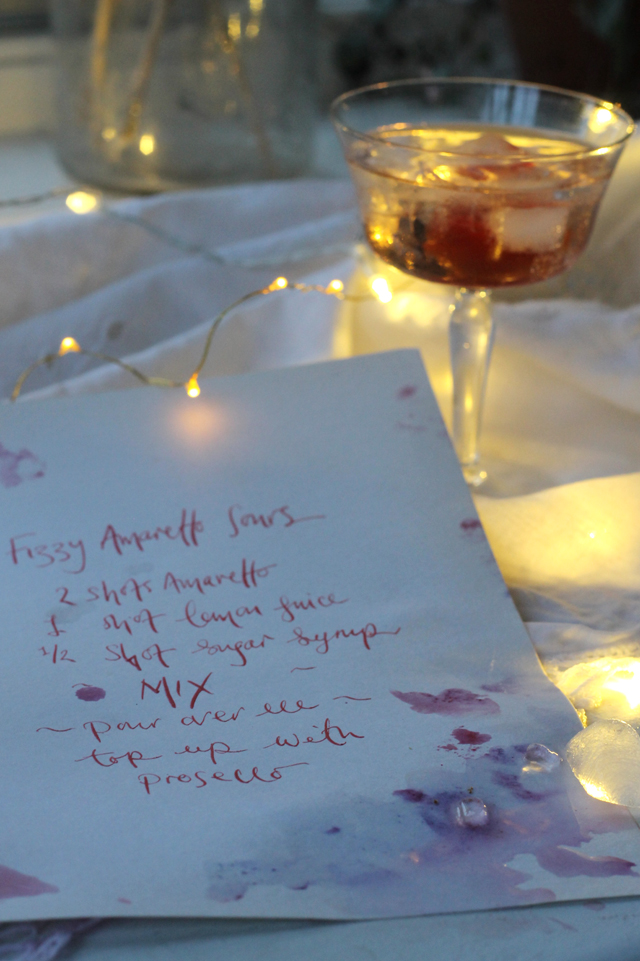 Fizzy Amaretto Sours
2 shots Amaretto
1 shot lemon juice
1/2 shot sugar syrup
MIX
~ pour over ice ~
top up with
prosecco